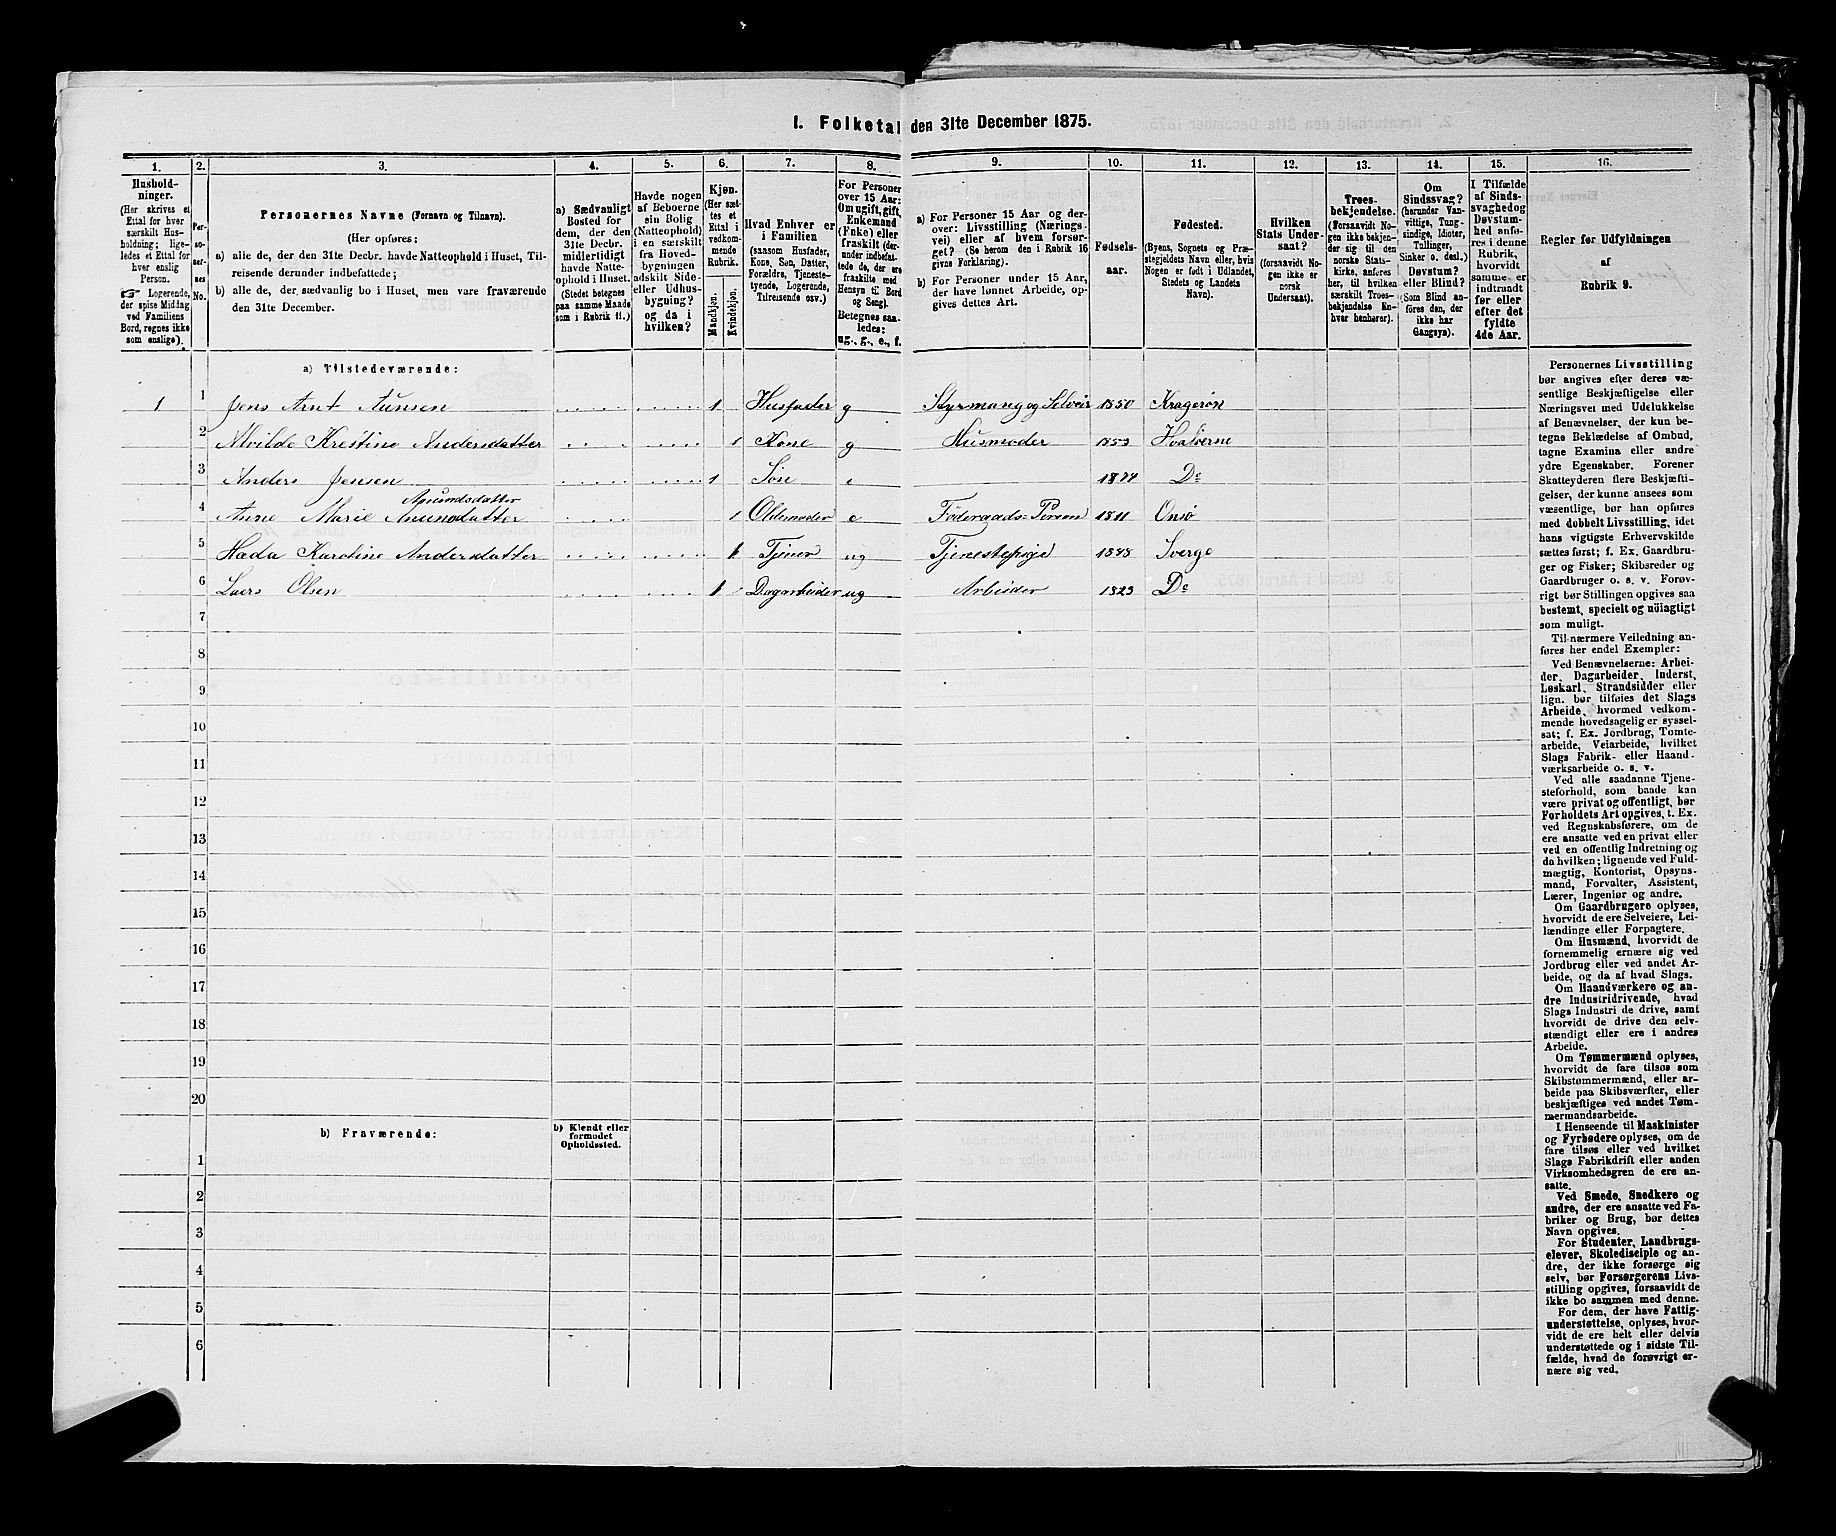 1. Folketal den 31te December 1875.
1. 2. 3. 4. 5. 6. 7. 8. 9. 10. 11. 12. 13. 14. 15. 16.
Hushold-
ninger.
(Her skrives et
Ettal for hver
særskilt Hus-
holdning; lige-
ledes et Ettal for
hver enslig
Person.
☞ Logerende,
der spise Middag
ved Familiens
Bord, regnes ikke
som enslige).
Per-
so-
ner-
nes
No.
Personernes Navne (Fornavn og Tilnavn).
(Her opføres:
a) alle de, der den 31te Decbr. havde Natteophold i Huset, Til-
reisende derunder indbefattede;
b) alle de, der sædvanlig bo i Huset, men vare fraværende
den 31te December.
a) Sædvanligt
Bosted for
dem, der den
31te Decbr.
midlertidigt
havde Natte-
ophold i Huset.
(Stedet betegnes
paa samme Maade
som i Rubrik 11.)
Havde nogen
af Beboerne
sin Bolig
(Natteophold)
i en særskilt
fra Hoved-
bygningen
adskilt Side-
eller Udhus-
bygning?
og da i
hvilken?
Kjøn.
(Her sæt-
tes et
Ettal i
vedkom-
mende
Rubrik.
Mandkjøn.
Kvindekjøn.
Hvad Enhver er
i Familien
(saasom Husfader,
Kone, Søn, Datter,
Forældre, Tjeneste-
tyende, Logerende,
Tilreisende osv.)
For Personer
over 15 Aar:
Om ugift, gift,
Enkemand
(Enke) eller
fraskilt (der-
under indbefat-
tede de, der ere
fraskilte med
Hensyn til Bord
og Seng).
Betegnes saa-
ledes:
ug., g., e., f.
a) For Personer 15 Aar og der-
over: Livsstilling (Nærings-
vei) eller af hvem forsør-
get? (Se herom den i Rubrik 16
givne Forklaring).
b) For Personer under 15 Aar,
der have lønnet Arbeide, op-
gives dettes Art.
Fødsels-
aar.
Fødested.
(Byens, Sognets og Præ-
stegjeldets Navn eller, hvis
Nogen er født i Udlandet,
Stedets og Landets
Navn).
Hvilken
Stats Under-
saat?
(forsaavidt No-
gen ikke er
norsk
Undersaat).
Troes-
bekjendelse.
(Forsaavidt No-
gen ikke bekjen-
der sig til den
norske Stats-
kirke, anføres
her, til hvilken
særskilt Troes-
bekjendelse En-
hver henhører).
Om
Sindssvag?
(herunder Van-
vittige, Tung-
sindige, Idioter,
Tullinger,
Sinker o. desl.)
Døvstum?
eller Blind?
(Som Blind an-
føres den, der
ikke har
Gangsyn).
I Tilfælde
af Sinds-
svaghed og
Døvstum-
hed anfø-
res i denne
Rubrik,
hvorvidt
samme er
indtraadt
før eller
efter det
fyldte
4de Aar.
Regler for Udfyldningen
af
Rubrik 9.
a) Tilstedeværende:
1 1 Jens Arnt Aunsen 1 Husfader g Styrmang og Selveir 1850 Kragerön
2 Alvilde Krestine Andersdatter 1 Kone g Husmoder 1853 Hvalöerne
3 Anders Jensen 1 Sön 1874 Do
Amundsdatter
4 Anne Marie Anunsdatter 1 Oldemoder e Föderaads-Person 1811 Onsö
5 Hada Karoline Andersdatter 1 Tjener ug Tjenestepige 1848 Sverge
6 Laers Olsen 1 Dagarbeider ug Arbeider 1823 Do
7
8
9
10
11
12
13
14
15
16
17
18
19
20
b) Fraværende:
b) Kjendt eller
formodet
Opholdssted.
1
2
3
4
5
6
Personernes Livsstilling
bør angives efter deres væ-
sentlige Beskjæftigelse eller
Næringsvei med Udelukkelse
af Benævnelser, der kun be-
tegne Beklædelse af Ombud,
tagne Examina eller andre
ydre Egenskaber. Forener
Skatteyderen flere Beskjæfti-
gelser, der kunne ansees som
væsentlige, bør han opføres
med dobbelt Livsstilling, idet
hans vigtigste Erhvervskilde
sættes først; f. Ex. Gaardbru-
ger og Fisker; Skibsreder og
Gaardbruger o. s. v. Forøv-
rigt bør Stillingen opgives saa
bestemt, specielt og nöiagtigt
som muligt.
Til nærmere Veiledning an-
føres her endel Exempler:
Ved Benævnelserne: Arbei-
der, Dagarbeider, Inderst,
Løskarl, Strandsidder eller
lign. bør tilføies det Slags
Arbeide, hvormed vedkom-
mende hovedsagelig er syssel-
sat; f. Ex. Jordbrug, Tomte-
arbeide, Veiarbeide, hvilket
Slags Fabrik- eller Haand-
værksarbeide o. s. v.
Ved alle saadanne Tjene-
steforhold, som baade kan
være privat og offentligt, bør
Forholdets Art opgives, t. Ex.
ved Regnskabsførere, om de
ere ansatte ved en privat eller
ved en offentlig Indretning og
da hvilken; lignende ved Fuld-
mægtig, Kontorist, Opsyns-
mand, Forvalter, Assistent,
Lærer, Ingeniør og andre.
Om Gaardbrugere oplyses,
hvorvidt de ere Selveiere, Lei-
lændinge eller Forpagtere.
Om Husmænd, hvorvidt de
fornemmelig ernære sig ved
Jordbrug eller ved andet Ar-
beide, og da af hvad Slags.
Om Haandværkere og an-
dre Industridrivende, hvad
Slags Industri de drive, samt
hvorvidt de drive den selv-
stændigt eller ere i andres
Arbeide.
Om Tømmermænd oplyses,
hvorvidt de fare tilsøs som
Skibstømmermænd, eller ar-
beide paa Skibsværfter, eller
beskjæftiges ved andet Tøm-
mermandsarbeide.
I Henseende til Maskinister
og Fyrbødere oplyses, om de
fare tilsøs eller ved hvilket
Slags Fabrikdrift eller anden
Virksomhedsgren de ere an-
satte.
Ved Smede, Snedkere og
andre, der ere ansatte ved Fa-
briker og Brug, bør dettes
Navn opgives.
For Studenter, Landbrugs-
elever, Skoledisciple og an-
dre, der ikke forsørge sig
selv, bør Forsørgerens Livs-
stilling opgives, forsaavidt de
ikke bo sammen med denne.
For dem, der have Fattig-
understøttelse, oplyses, hvor-
vidt de ere helt eller delvis
understøttede og i sidste Til-
fælde, hvad de forøvrigt er-
nære sig ved.